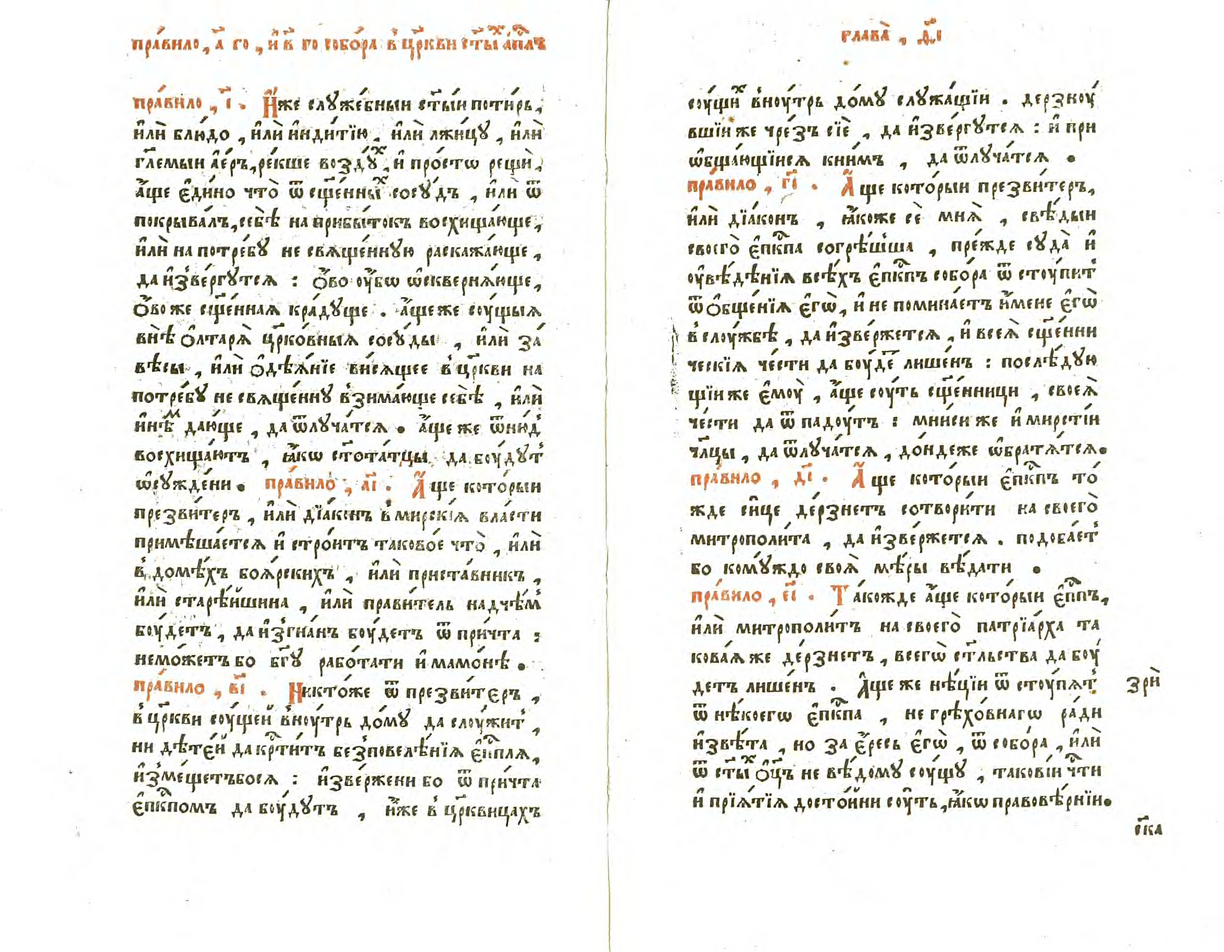 пра́вило, а҃ го, и҆ в҃ го собо́ра в҆ цр҃кви ст҃ы́хъ а҆пл҃ъ
пра́вило, і҃. И҆́же служе́бныи ст҃ы́и поти́рь,
и҆лѝ блю́до, и҆лѝ и҆нди́тїю, и҆лѝ лжи́цу, и҆лѝ
гл҃емыи а҆е́ръ, ре́кше возду́х, и҆ про́стѡ рещѝ,
а҆́ще є҆ди́но что̀ ѿ сщ҃е́нных сосу́дъ, и҆лѝ ѿ
покрыва́лъ, себѣ̀ на прибы́токъ восхища́юще,
и҆лѝ на потре́бу не свяще́нную раскажа́юще,
да и҆зве́ргутся : ѻ҆́во оу҆́бѡ ѡ҆скверня́юще,
ѻ҆́во же сщ҃е́нная краду́ще. а҆́ще же соу́щыѧ
внѣ̀ ѻ҆лтаря̀ цр҃ко́вныѧ сосу́ды, и҆лѝ за́
вѣсы, и҆лѝ ѻ҆дѣѧ́нїе вися́щее в҆ цр҃кви на
потре́бу не свяще́нну взима́юще себѣ̀, и҆лѝ
и҆нѣ́м даю́ще, да ѿлуча́тся. а҆́ще же ѿню́д
восхища́ютъ, ꙗ҆́кѡ стота́тцы, да боу́дутъ
ѡ҆су́ждени. пра́вило, а҃і. А҆́ще кото́рыи
презви́теръ, и҆лѝ дїа́конъ в мирскі́ѧ вла́сти
примѣша́ется и҆ стро́итъ таково́е что̀, и҆лѝ
в домѣ́хъ боя́рскихъ, и҆лѝ приста́вникъ,
и҆лѝ старѣ́йшина, и҆лѝ прави́тель надче́м
боу́детъ, да и҆згна́нъ боу́детъ ѿ при́чта :
немо́жетъ бо бг҃у рабо́тати и҆ мамо́нѣ.
пра́вило, в҃і. Никто́же ѿ презви́теръ,
в҆ цр҃кви соу́щей вноу́трь до́му да слоу́житъ,
ни дѣте́й да кр҃ти́тъ безповелѣ́нїѧ є҆п҃пля,
и҆зме́щетъбося : и҆зве́ржени бо ѿ при́чта
є҆пк҃помъ да боу́дутъ, и҆̀же в҆ цр҃квицахъ
глава̀, д҃і
соу́щих вноу́трь до́му служа́щїи. дерзноу́
вшїи же чрезъ сїѐ, да и҆зве́ргутся : и҆ при
ѡ҆бща́ющїися книмъ, да ѿлуча́тся.
пра́вило, г҃і. А҆́ще кото́рыи презви́теръ,
и҆лѝ дїа́конъ, ꙗ҆́коже сѐ мня̀, свѣ́дыи
своего̀ є҆пк҃па согрѣ́шша, пре́жде суда̀ и҆
оу҆вѣ́дѣнїѧ всѣ́хъ є҆пк҃пъ собо́ра ѿ стоу́питъ
ѿ ѻ҆бще́нїѧ є҆гѡ̀, и҆ не помина́етъ и҆́мене є҆гѡ̀
в слоу́жбѣ, да и҆зве́ржется, и҆ всея̀ сщ҃е́нни
ческїѧ че́сти да боу́де лише́нъ : послѣ́дую
щїи же є҆моу̀, а҆́ще соу́ть сщ҃е́нници, своея̀
че́сти да ѿ падоу́тъ : мни́си же и҆ ми́рстїи
чл҃цы, да ѿлуча́тся, до́ндеже ѡ҆братя́тся.
пра́вило, д҃і. А҆́ще кото́рыи є҆пк҃пъ то́
жде си́це де́рзнетъ сотвори́ти на своего̀
митрополи́та, да и҆зве́ржется. подоба́етъ
бо кому́ждо своя̀ мѣ́ры вѣ́дати.
пра́вило, є҃і. Та́кожде а҆́ще кото́рыи є҆п҃пъ,
и҆лѝ митрополи́тъ на своего̀ патрїа́рха та
кова́я же де́рзнетъ, всегѡ̀ ст҃льства да боу́
детъ лише́нъ. А҆́ще же нѣ́цїи ѿ стоу́пятъ
зрѝ
ѿ нѣ́коегѡ є҆пк҃па, не грѣхо́внагѡ ра́ди
и҆звѣ́та, но за є҆́ресь є҆гѡ̀, ѿ собо́ра, и҆лѝ
ѿ ст҃ы́х ѻ҆ц҃ъ не вѣ́дому соу́щу, такові́и чт҃и
и҆ прїя́тїѧ досто́йни соу́ть, ꙗ҆́кѡ правовѣ́рнїи.
ск҃а